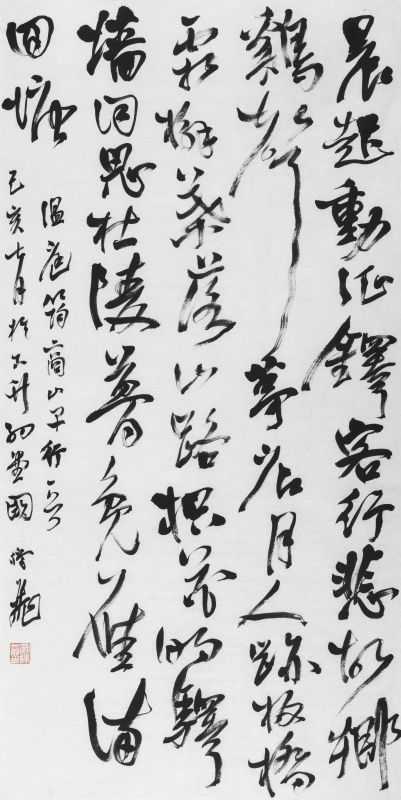 晨起動征鐸客行悲故鄉
鷄聲茅店月人跡板橋
霜槲葉落山路枳花明驛
墻因思杜陵夢鳧雁滿
回塘
温庭筠商山早行
己亥七月於